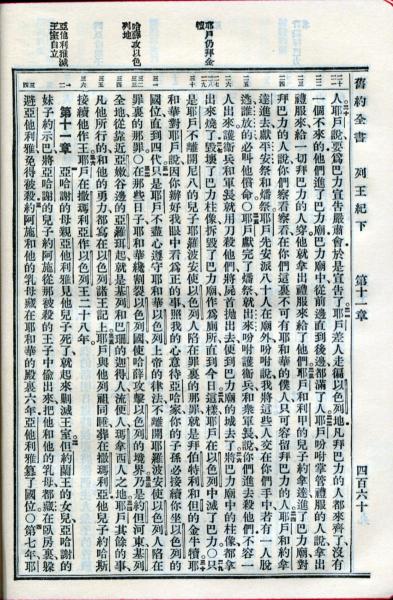 舊約全書 列王紀下 第十一章 四百六十
耶戶仍拜金犢
哈薛攻以色列地
亞他利雅滅王室自立
人耶戶說要爲巴力宣告嚴肅會於是宣告了耶戶差人走徧以色列地凡拜巴力的人都來齊了沒有
一個不來的他們進了巴力廟巴力廟中從前邊直到後邊都滿了人耶戶吩咐掌管禮服的人說拿出
禮服來給一切拜巴力的人穿他就拿出禮服來給了他們耶戶和利甲的兒子約拿達進了巴力廟對
拜巴力的人說你們察看察看在你們這裏不可有耶和華的僕人只可容留拜巴力的人耶戶和約拿
達進去獻平安祭和燔祭耶戶先安派八十人在廟外吩咐說我將這些人交在你們手中若有一人脫
逃誰放的必叫他償命○耶戶獻完了燔祭就出來吩咐護衛兵和衆軍長說你們進去殺他們不容一
人出來護衛兵和軍長就用刀殺他們將屍首拋出去便到巴力廟的城去了將巴力廟中的柱像都拿
出來燒了毀壞了巴力柱像拆毀了巴力廟作爲廁所直到今日這樣耶戶在以色列中滅了巴力○只
是耶戶不離開尼八的兒子耶羅波安使以色列人陷在罪裏的那罪就是拜伯特利和但的金牛犢耶
和華對耶戶說因你辦好我眼中看爲正的事照我的心意待亞哈家你的子孫必接續你坐以色列的
國位直到四代只是耶戶不盡心遵守耶和華以色列上帝的律法不離開耶羅波安使以色列人陷在
罪裏的那罪○在那些日子耶和華纔割裂以色列國使哈薛攻擊以色列的境界乃是約但河東基列
全地從靠近亞嫩谷邊的亞羅珥起就是基列和巴珊的迦得人流便人瑪拿西人之地耶戶其餘的事
凡他所行的和他的勇力都寫在以色列諸王記上耶戶與他列祖同睡葬在撒瑪利亞他兒子約哈斯
接續他作王耶戶在撒瑪利亞作以色列王二十八年
第十一章 亞哈謝的母親亞他利雅見他兒子死了就起來剿滅王室但約蘭王的女兒亞哈謝的
妹子約示巴將亞哈謝的兒子約阿施從那被殺的王子中偷出來把他和他的乳母都藏在臥房裏躲
避亞他利雅免得被殺約阿施和他的乳母藏在耶和華的殿裏六年亞他利雅篡了國位○第七年耶